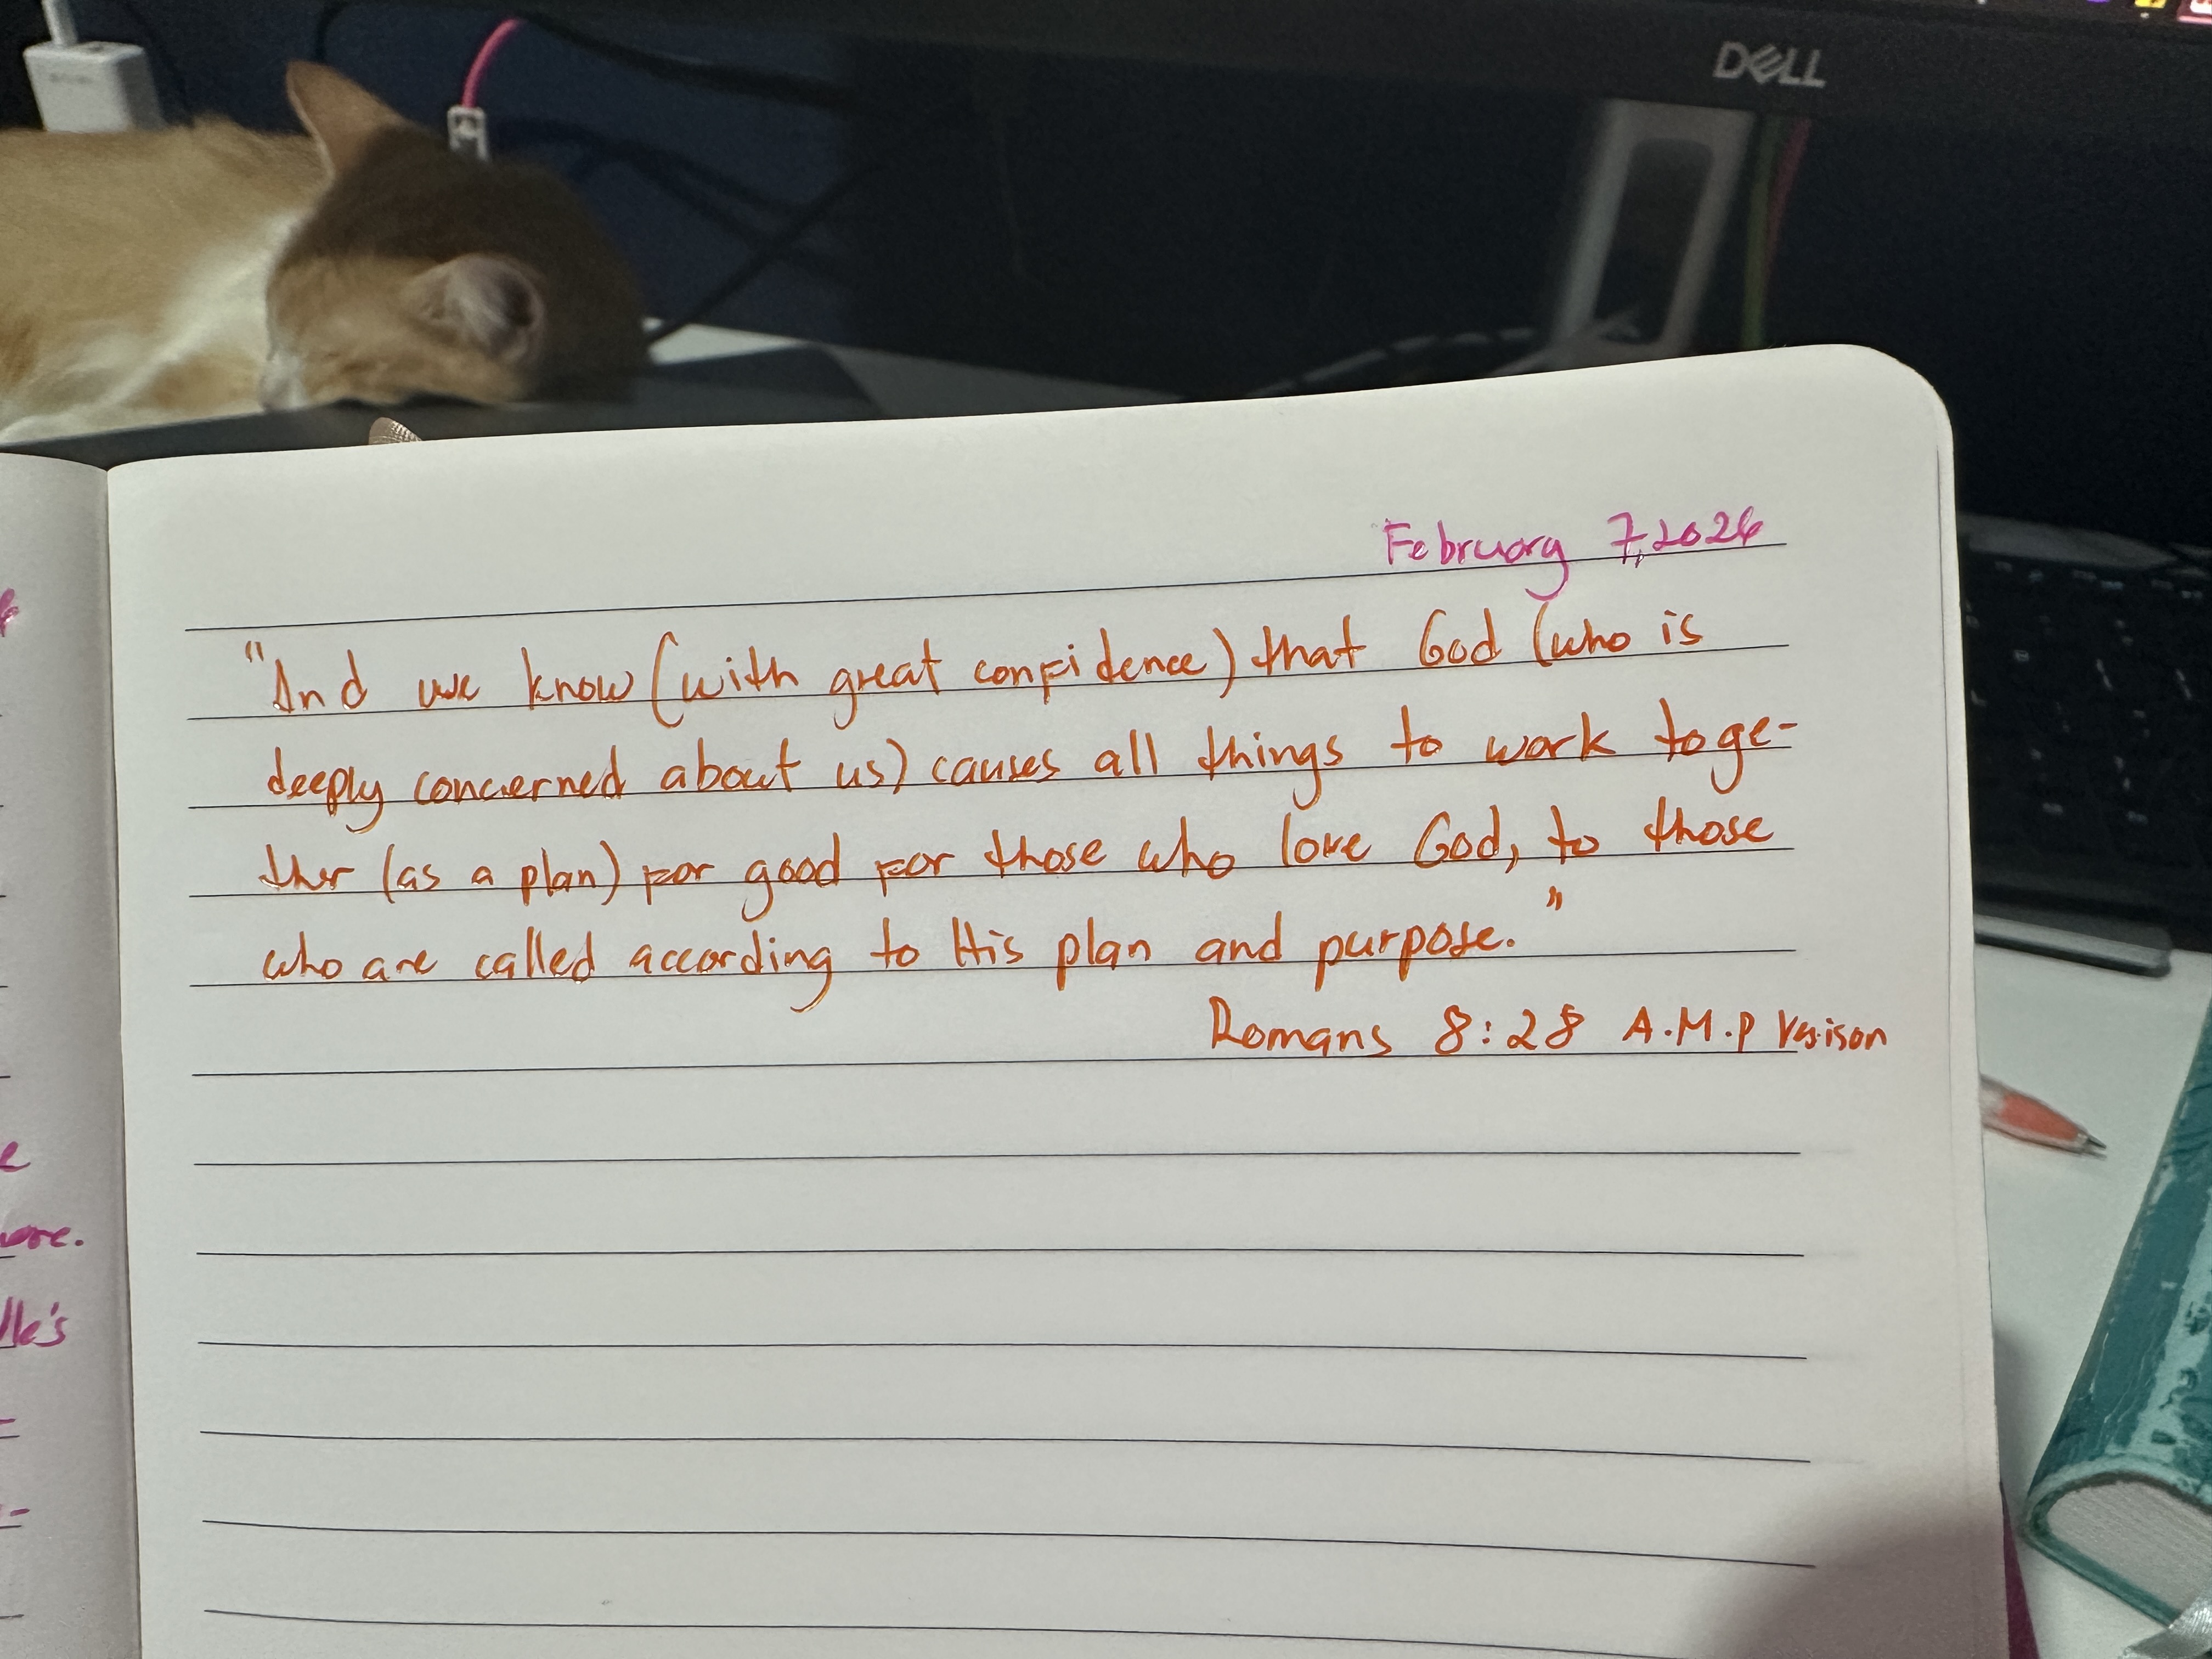 DELL
February 7, 2026
"And we know (with great confidence) that God (who is
deeply concerned about us) causes all things to work toge-
ther (as a plan) for good for those who love God, to those
who are called according to His plan and purpose."
Romans 8:28 A.M.P Verison